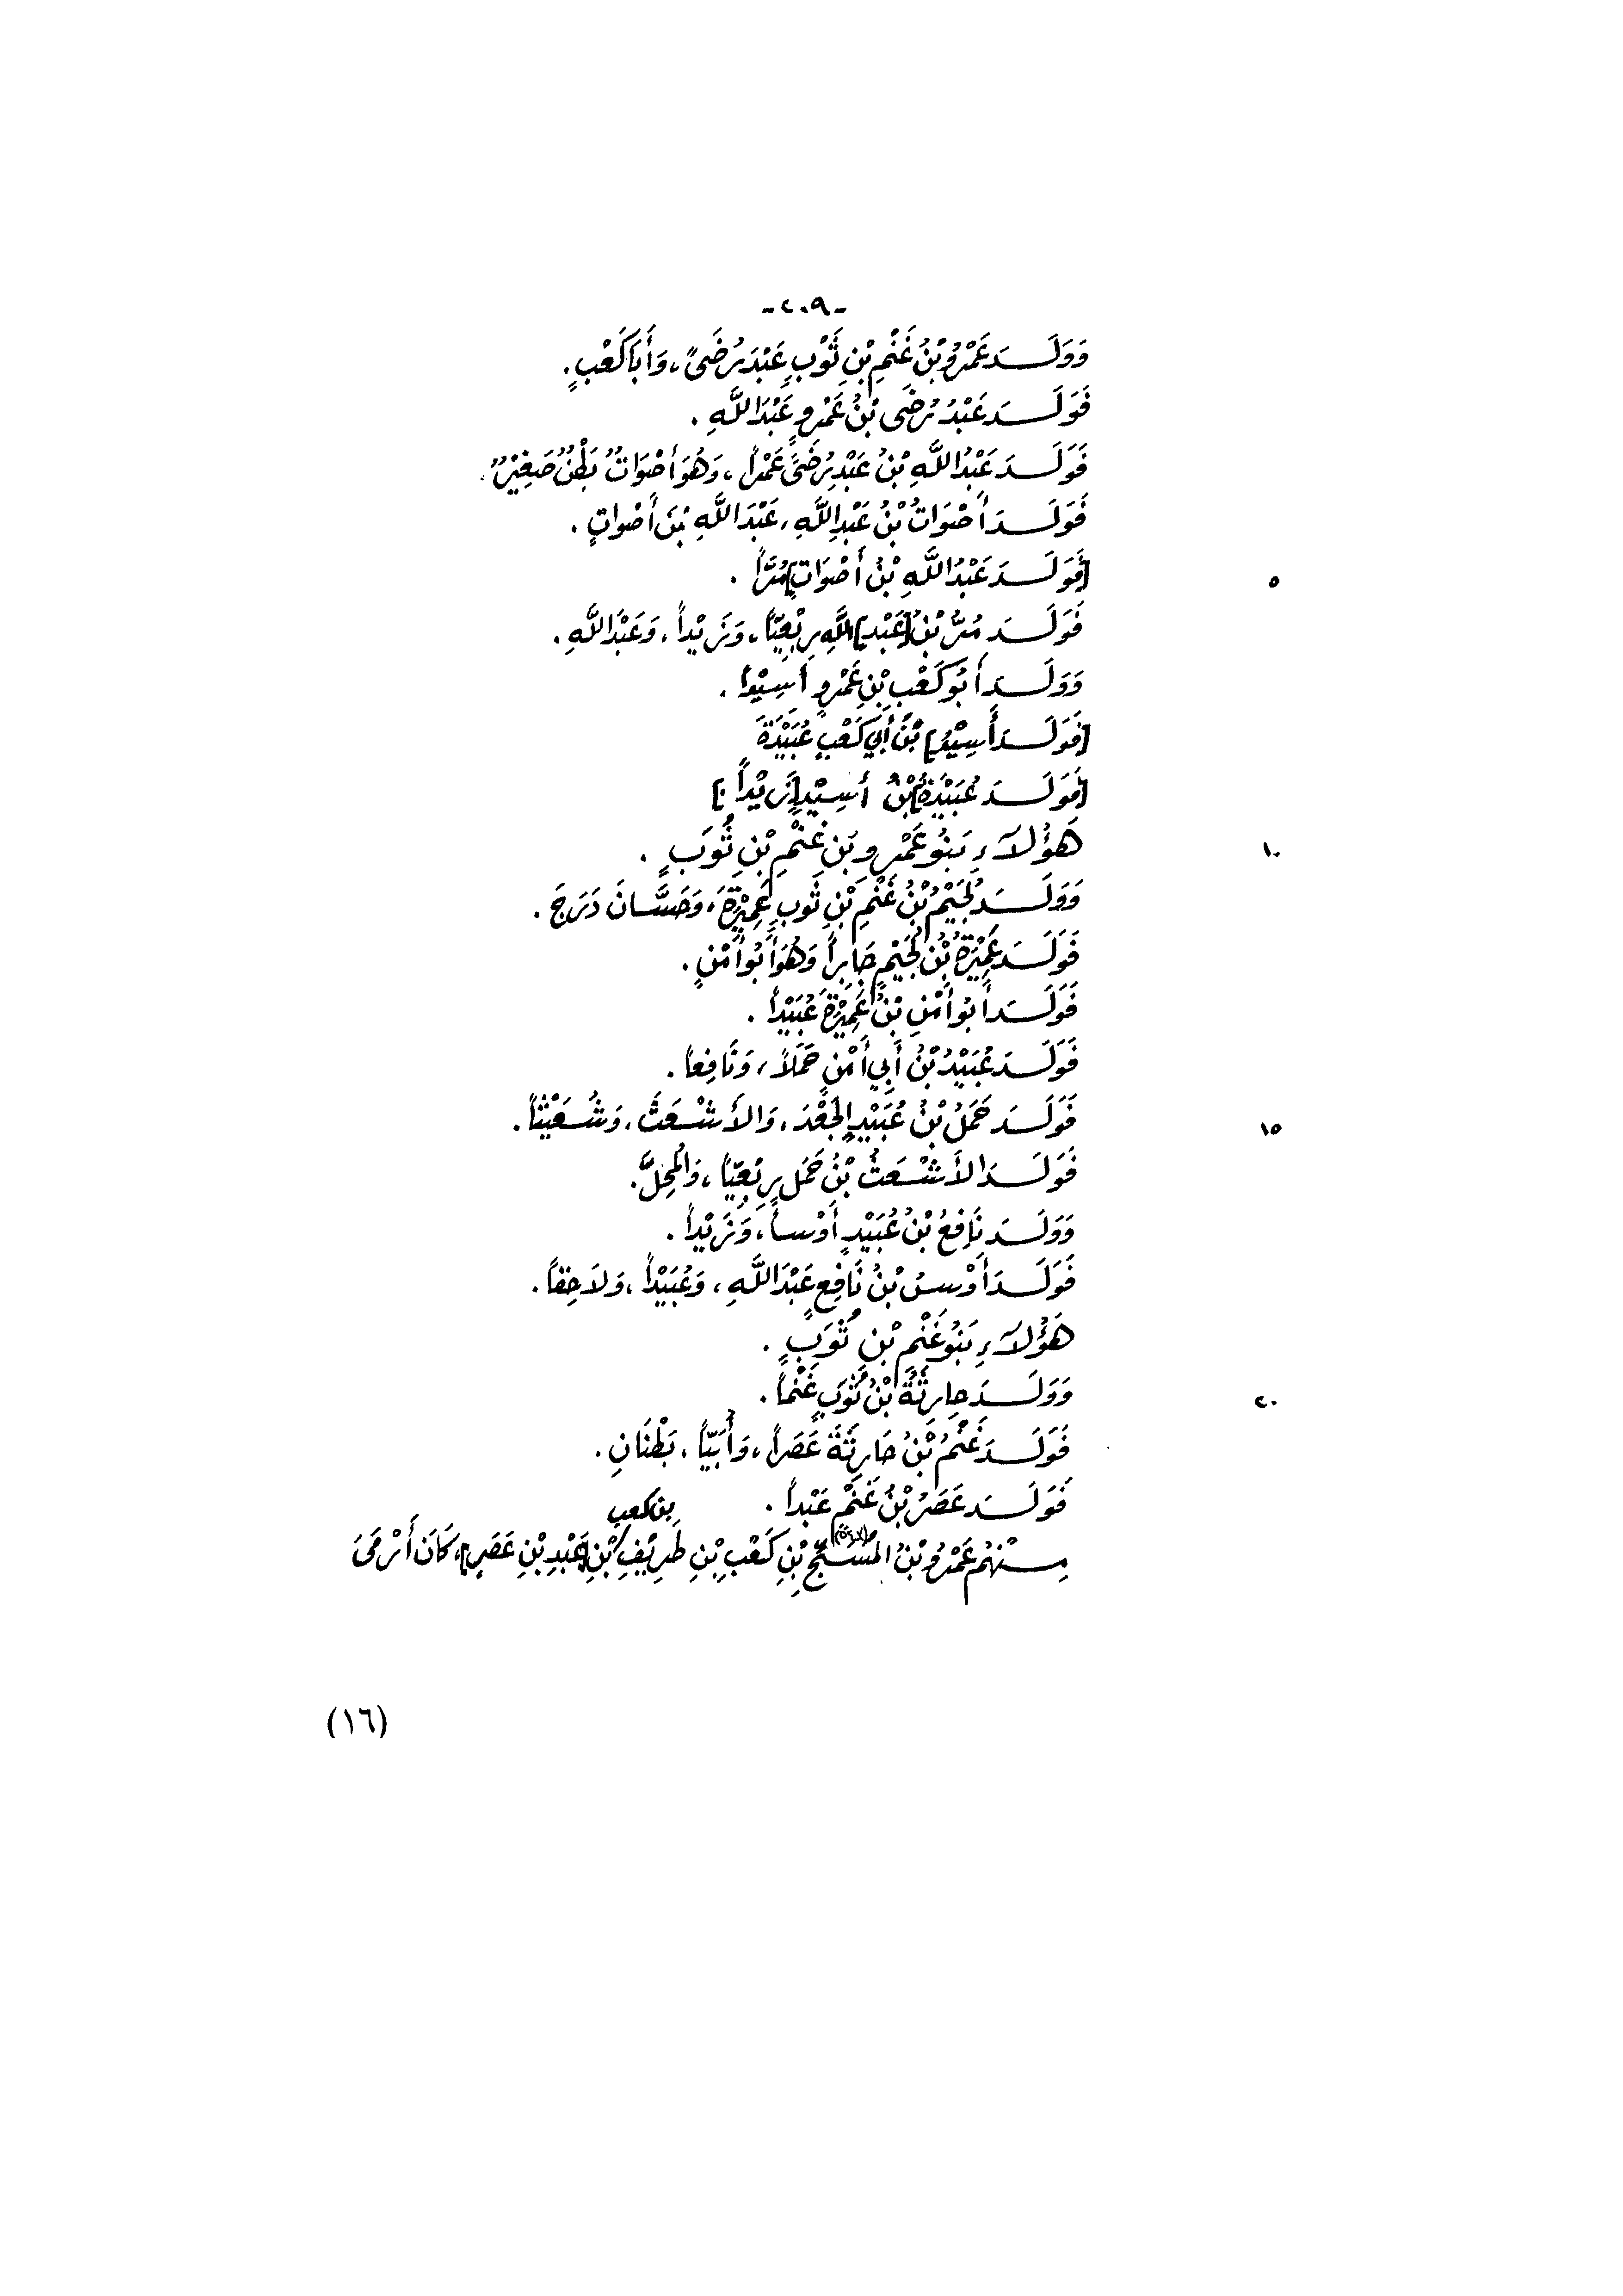 -٢٠٩-
وَوَلَـدَ عَمْرُو بْنُ غَنْمِ بْنِ ثَوْبٍ عَبْدَ رُضَىً، وَأَبَا كَعْبٍ.
فَوَلَـدَ عَبْدُ رُضَى بْنُ عَمْرٍو عَبْدَ اللَّهِ.
فَوَلَـدَ عَبْدُ اللَّهِ بْنُ عَبْدِ رُضَىً عَمْراً، وَهُوَ أَصْوَاتُ بَطْنٌ صَغِيْرٌ.
فَوَلَـدَ أَصْوَاتُ بْنُ عَبْدِ اللَّهِ، عَبْدَ اللَّهِ بْنَ أَصْوَاتٍ.
٥
[فَوَلَـدَ عَبْدُ اللَّهِ بْنُ أَصْوَاتٍ] مُرَّاً.
فَوَلَـدَ مُرُّ بْنُ [عَبْدِ] اللَّهِ رِبْعِيّاً، وَزَيْداً، وَعَبْدَ اللَّهِ.
وَوَلَـدَ أَبُو كَعْبِ بْنِ عَمْرٍو أَسِيْداً.
[فَوَلَـدَ أَسِيْدُ] بْنُ أَبِي كَعْبٍ عُبَيْدَةَ
[فَوَلَـدَ عُبَيْدَةُ] بْنُ أَسِيْدٍ [زَيْداً.]
١٠
هَؤُلآءِ بَنُو عَمْرِو بْنِ غَنْمِ بْنِ ثُوَبٍ.
وَوَلَـدَ لُجَيْمُ بْنُ غَنْمِ بْنِ ثَوبٍ عَمِيْرَةَ، وَحَسَّـانَ دَرَجَ.
فَوَلَـدَ عَمِيْرَةُ بْنُ لُجَيْمٍ جَابِراً وَهُوَ أَبُو أَمْنٍ.
فَوَلَـدَ أَبُو أَمْنِ بْنُ عَمِيْرَةَ عُبَيْداً.
فَوَلَـدَ عُبَيْدُ بْنُ أَبِي أَمْنٍ حَمَلاً، وَنَافِعاً.
١٥
فَوَلَـدَ حَمَلُ بْنُ عُبَيْدٍ الجَعْدَ، وَالأَشْـعَثَ، وَشُـعَيْثاً.
فَوَلَـدَ الأَشْـعَثُ بْنُ حَمَلٍ رِبْعِيّاً، وَالمُحِلَّ.
وَوَلَـدَ نَافِعُ بْنُ عُبَيْدٍ أَوْسـاً، وَزَيْداً.
فَوَلَـدَ أَوْسُ بْنُ نَافِعٍ عَبْدَ اللَّهِ، وَعُبَيْداً، وَلَاحِقاً.
هَؤُلآءِ بَنُو غَنْمِ بْنِ ثُوَبٍ.
٢٠
وَوَلَـدَ حَارِثَةُ بْنُ ثُوَبٍ غَنْماً.
فَوَلَـدَ غَنْمُ بْنُ حَارِثَةَ عَصَراً، وَأُبَيّاً، بَطْنَانِ.
فَوَلَـدَ عَصَرُ بْنُ غَنْمٍ عَبْداً.
بن كعب
مِـنْهُم عَمْرُو بْنُ المُسَـبِّحِ بْنِ كَعْبِ بْنِ طَرِيْفِ بْنِ [عَبْدِ بْنِ عَصَرٍ]، كَانَ أَرْمَى
(١٦)